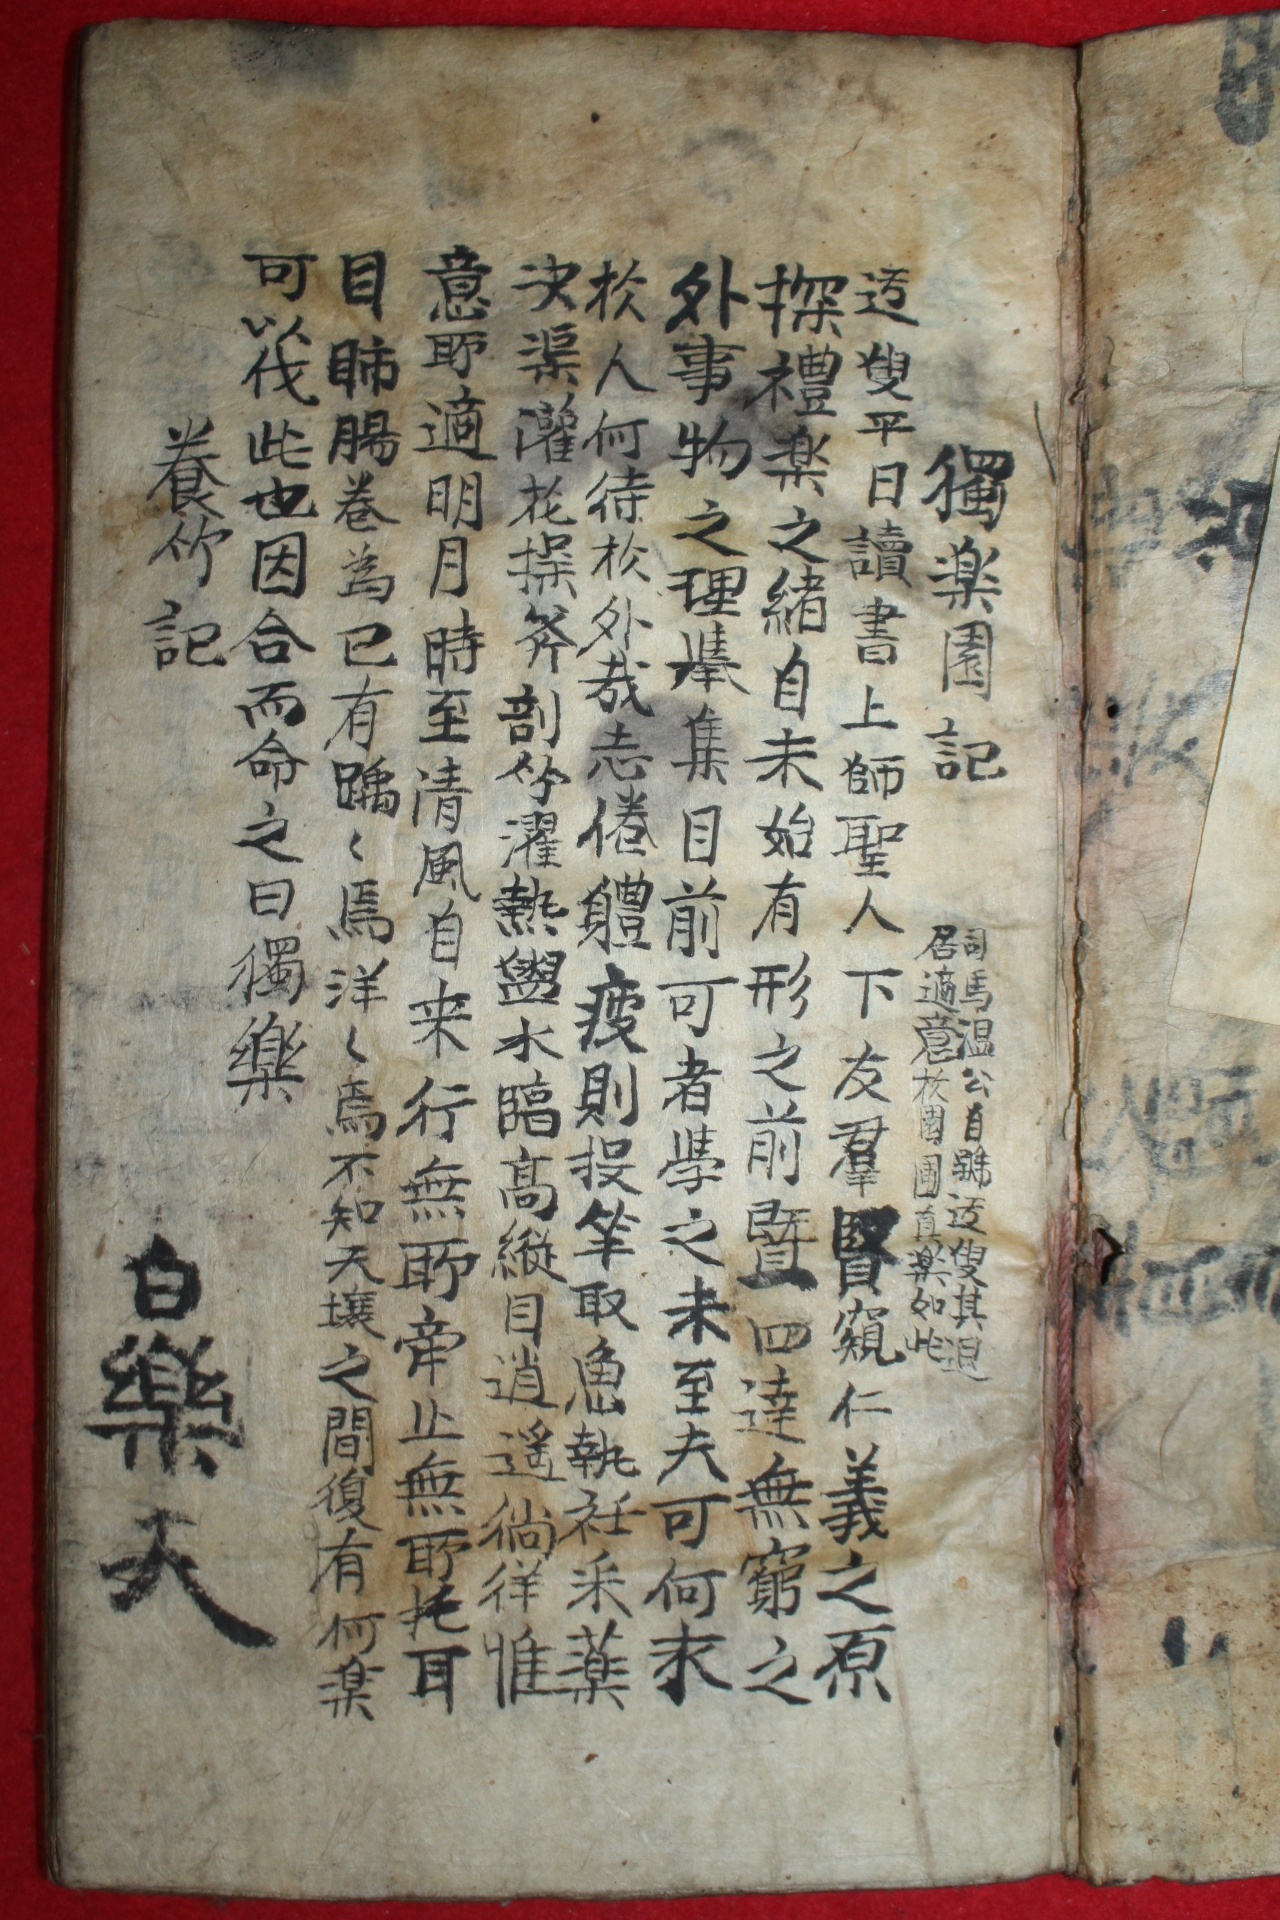 獨楽園記
司馬温公自號迃叟其退
居適意扵園圃真楽如此
迃叟平日讀書上師聖人下友羣賢窺仁義之原
探禮楽之緒自未始有形之前曁四達無窮之
外事物之理擧集目前可者學之未至夫可何求
扵人何待扵外哉志倦軆疲則投竿取魚執衽采薬
决渠灌花操斧剖竹濯熱盥水臨高縦目逍遥徜徉惟
意所適明月時至清風自来行無所牽止無所柅耳
目肺腸卷為已有踽〻焉洋〻焉不知天壤之間復有何楽
可以伐此也因合而命之曰獨樂
養竹記
白樂天